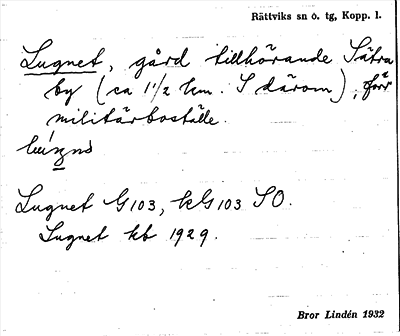 Rättviks sn ö. tg, Kopp. l.
Lugnet, gård tillhörande Sätra
by (ca 1 1/2 km. S därom), förr
militärboställe.
Lugnet G103, kG103 SO.
Lugnet kb 1929.
Bror Lindén 1932